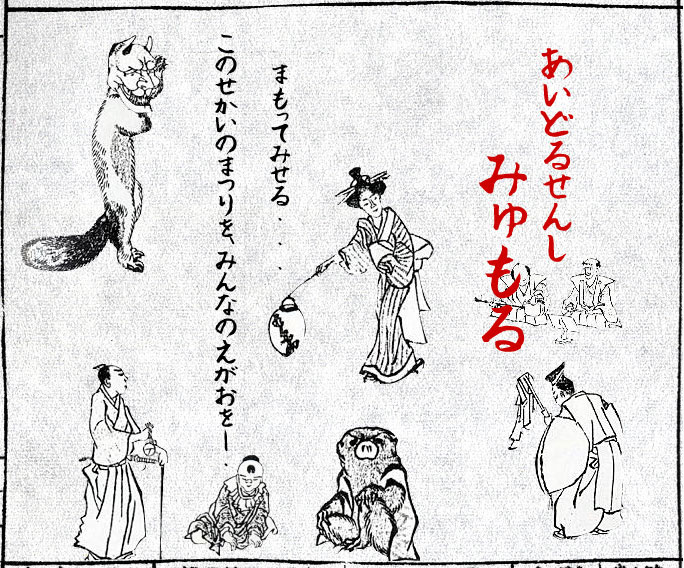 あいどるせんし
みゅもる
まもってみせる．．．
このせかいのまつりを、みんなのえがおをー．